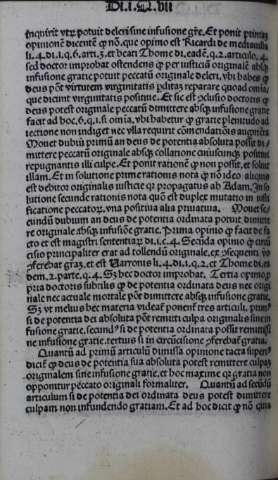 Di.i.Q.vii
inquirit vtr̃ potuit deleri sine infusione gr̃e. Et ponit primã
opinionẽ dicentẽ ꝙ nõ. que opinio est Ricardi de mediauilla
li.4.di.1.q.6.arti.3. et beati Thome di.eadẽ.q.2.articulo.4.
sed doctor improbat ostendens ꝙ per iusticiã originalẽ absꝗ
infusione gratie potuit peccatũ originale deleri. vbi habes ꝙ
deus põt virtutem virginitatis perditã reparare quoad omia
que dicunt virginitatis positiue. Et sic est conclusio doctoris ꝙ
deus potest originale peccatũ dimittere absꝗ infusione gratie
facit ad hoc.6.q.1.si omia. vbi habetur ꝙ gratie plenitudo ad
iectione non indiget nec vlla requirit comendatiõis augmẽtũ
Mouet dubiũ primũ an deus de potentia absoluta possit di
mittere peccatũ originale absꝗ collatione cuiuscunꝗ positiui
repugnantis illi culpe. Et ponit rationẽ ꝙ non posset. et soluit
illam. Et in solutione prime rationis nota ꝙ nõ ideo aliquis
est debitor originalis iusticie qꝛ propagatus ab Adam. In so
lutione secunde rationis nota quõ est duplex mutatio in iusti
ficatione peccatoꝝ. vna positiua alia priuatiua. Mouet se
cundũ dubium an deus de potentia ordinata potuit dimitte
re originale absꝗ infusiõe gratie. Prima opinio ꝙ
cto et est magistri sententiaꝝ di.1.c.4. Secũda opinio ꝙ circũ
cisio principaliter erat ad tollendũ originale. et
et est Varronis li.4.di.1.q.2. et Thome di.ea
dem.2.parte.q.4. Sʒ hec doctor improbat. Tertia opinio ꝓ
pria doctoris subtilis ꝙ de potentia ordinata deus nec origi
nale nec actuale mortale põt dimittere absꝗ infusiõe gratie.
Sʒ vt melius hec materia videať ponent̃ tres articuli. primꝰ
si de potentia dei absoluta põt remitti culpa originalis sine in
fusione gratie. secundꝰ si de potentia ordinata possit remitti si
ne infusione gratie. tertius si in circũcisione ferebať gratia.
Quantũ ad primũ articulũ dimissa opinione tacta superꝰ
dicit̃ ꝙ deus de potentia sua absoluta potest remittere culpaʒ
originalem sine infusione gratie. et hoc maxime qꝛ gratia non
opponitur peccato originali formaliter. Quantũ ad secũdũ
articulum si de potentia dei ordinata deus potest dimittere
culpam non infundendo gratiam. Et ad hoc dicit̃ ꝙ nõ quia